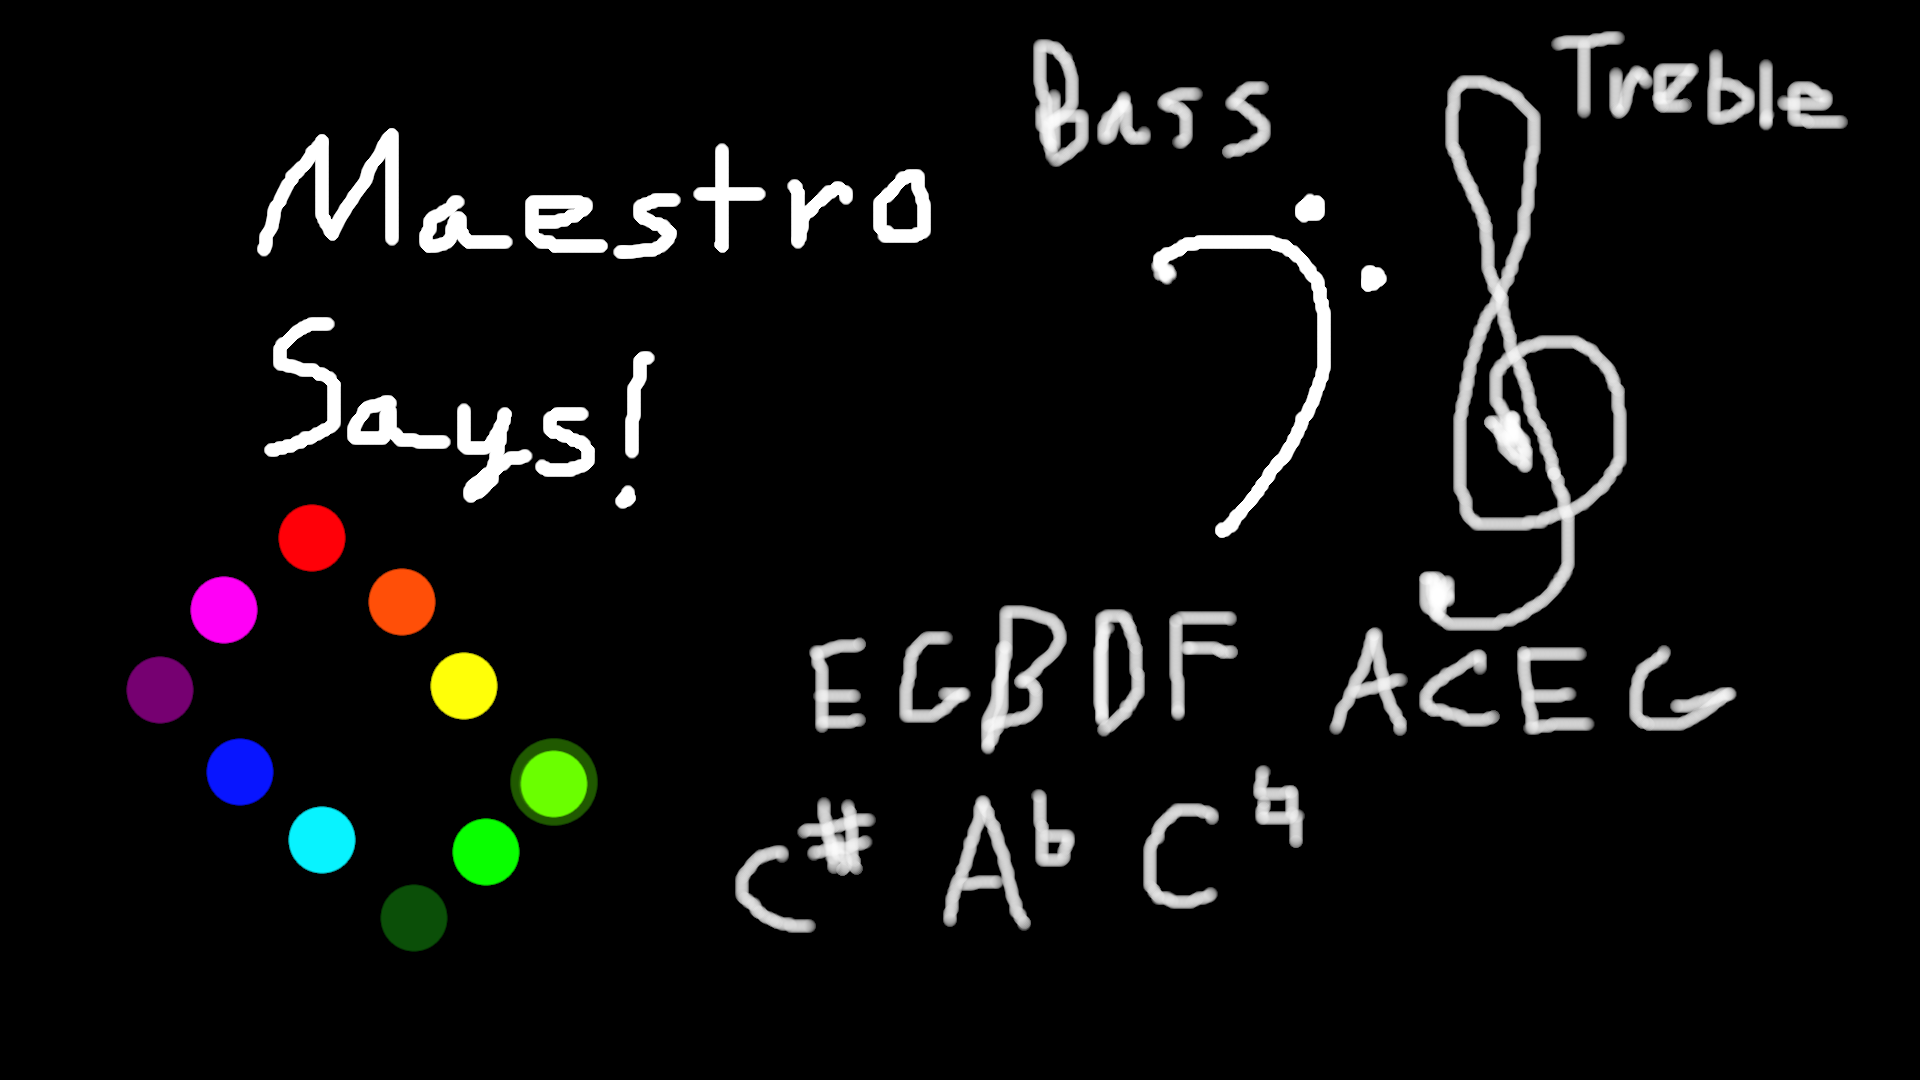 Maestro
Says!
Bass
Treble
EGBDF ACEG
C# A♭ C♮